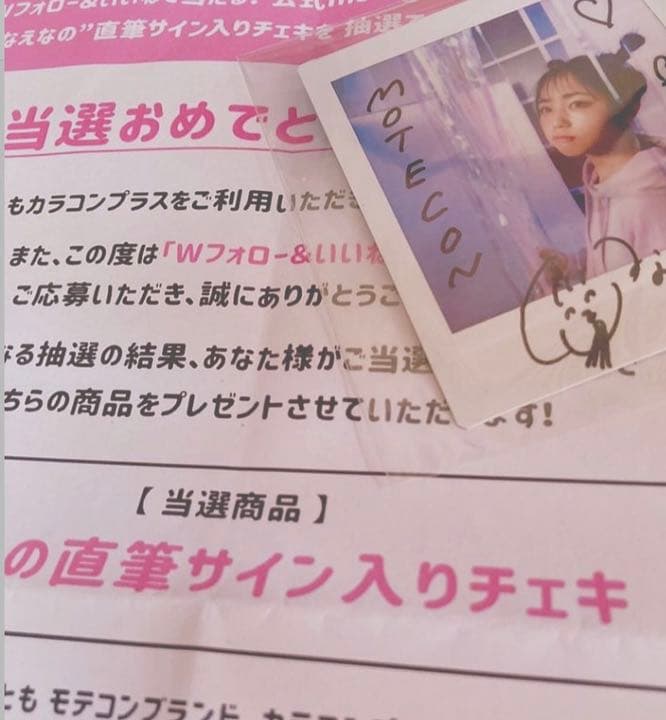 Wフォロー&いいねで当たる! 公式
なえなの"直筆サイン入りチェキを 抽選
当選おめでと
もカラコンプラスをご利用いただき
また、この度は「Wフォロー&いいね
ご応募いただき、誠にありがとうご
なる抽選の結果、あなた様がご当選
ちらの商品をプレゼントさせていただきます!
【 当選商品 】
の直筆サイン入りチェキ
とも モテコンブランド、カラコンプ
MOTECON